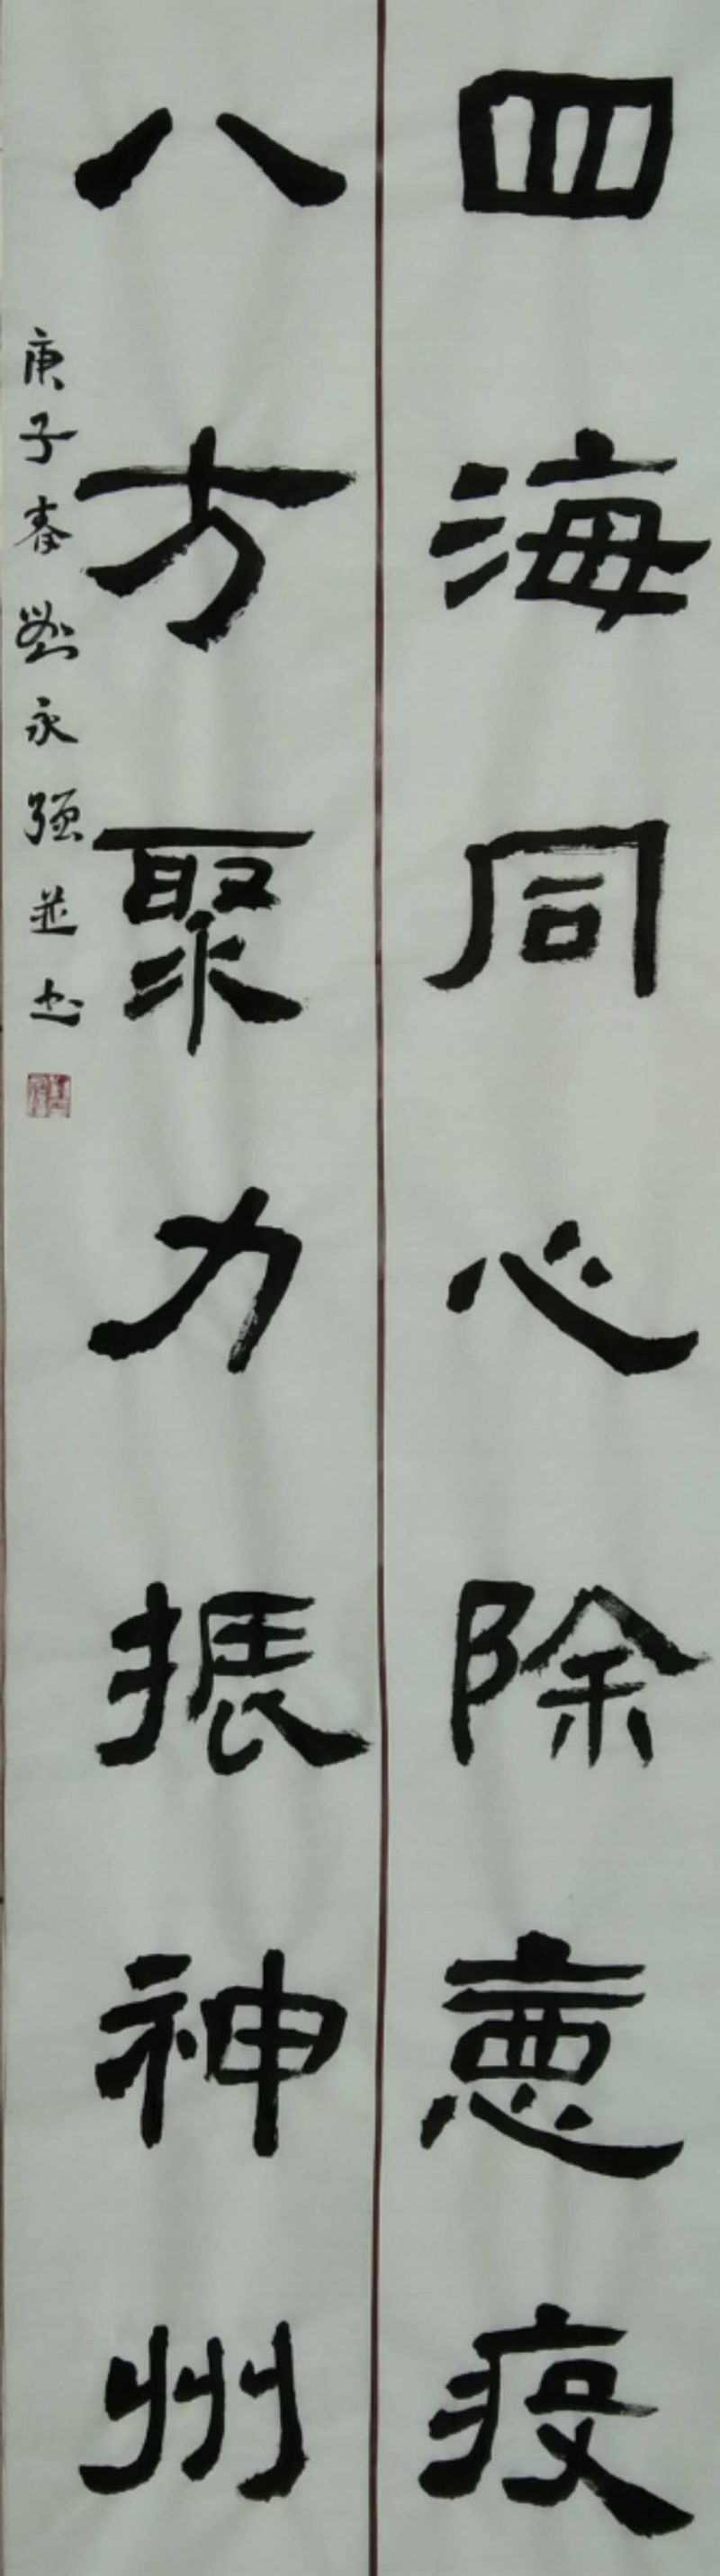 四海同心除悪疫
八方聚力振神州
庚子春劉永强並书